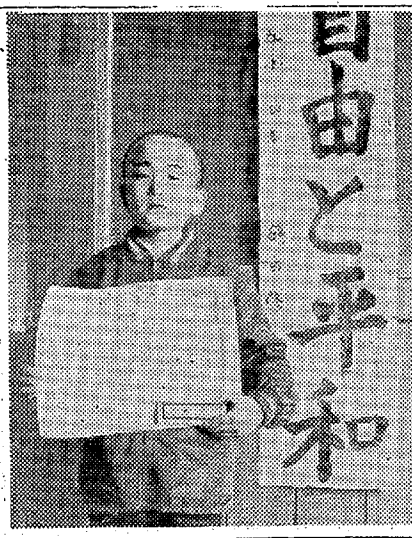 自由と平和